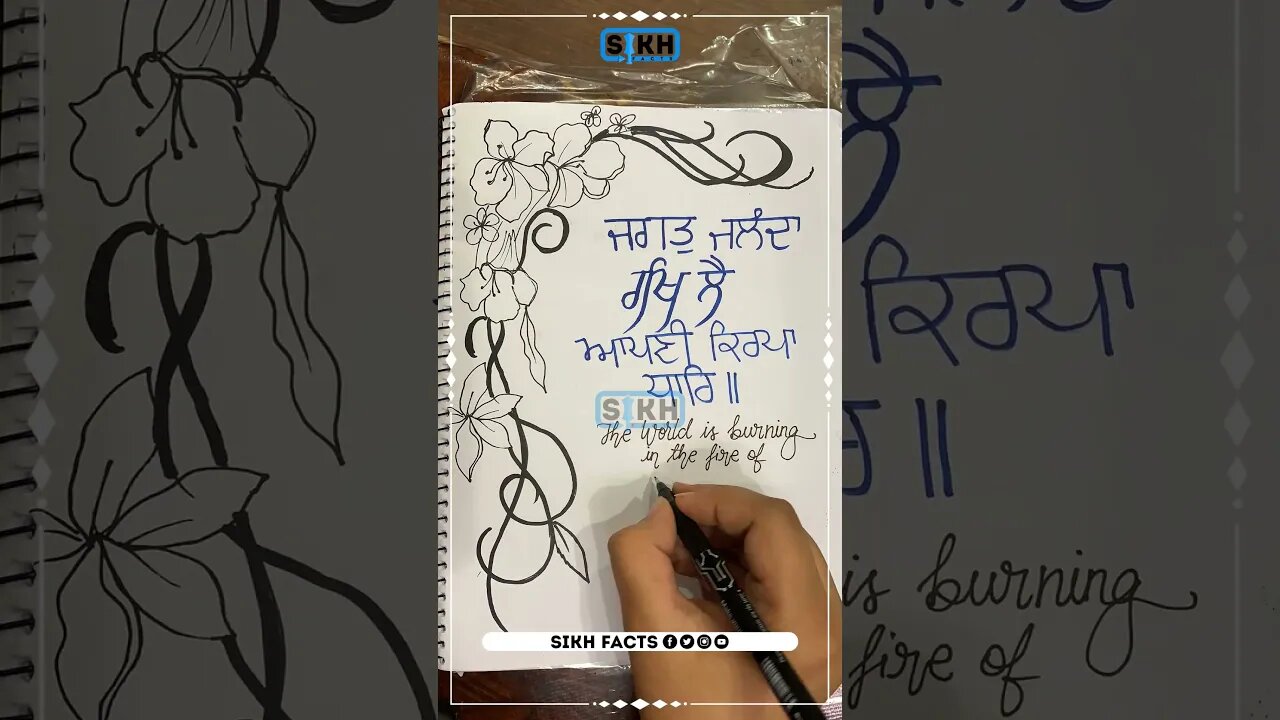 SIKH
FACTS
ਜਗਤੁ ਜਲੰਦਾ
ਰਖਿ ਲੈ
ਆਪਣੀ ਕਿਰਪਾ
ਧਾਰਿ ॥
SIKH
The World is burning
in the fire of
SIKH FACTS